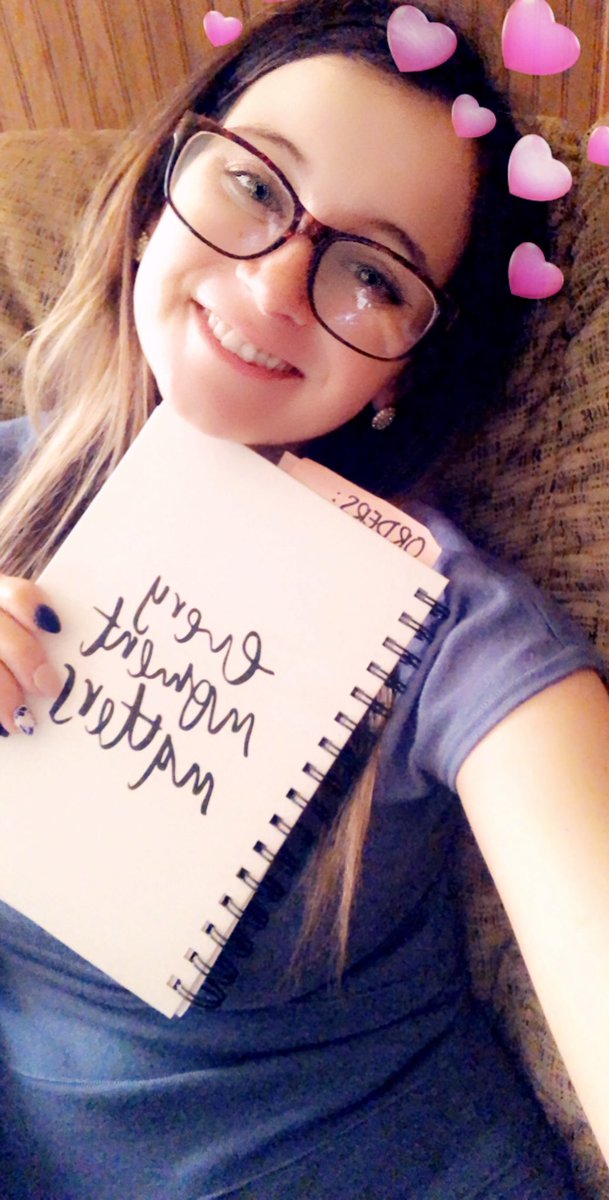 ORDERS:
every
moment
matters